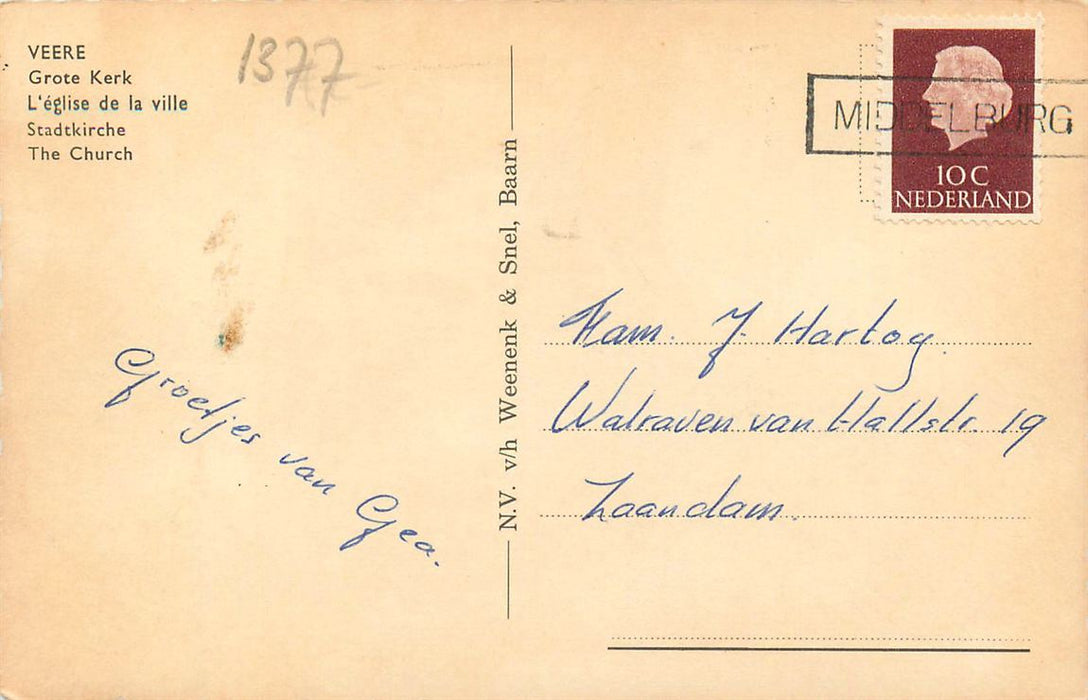 VEERE
Grote Kerk
L'église de la ville
Stadtkirche
The Church
1377
N.V. v/h Weenenk & Snel, Baarn
MIDDELBURG
10 C
NEDERLAND
Fam. J. Hartog.
Walraven van Hallstr. 19
Zaandam.
Groetjes van Gea.